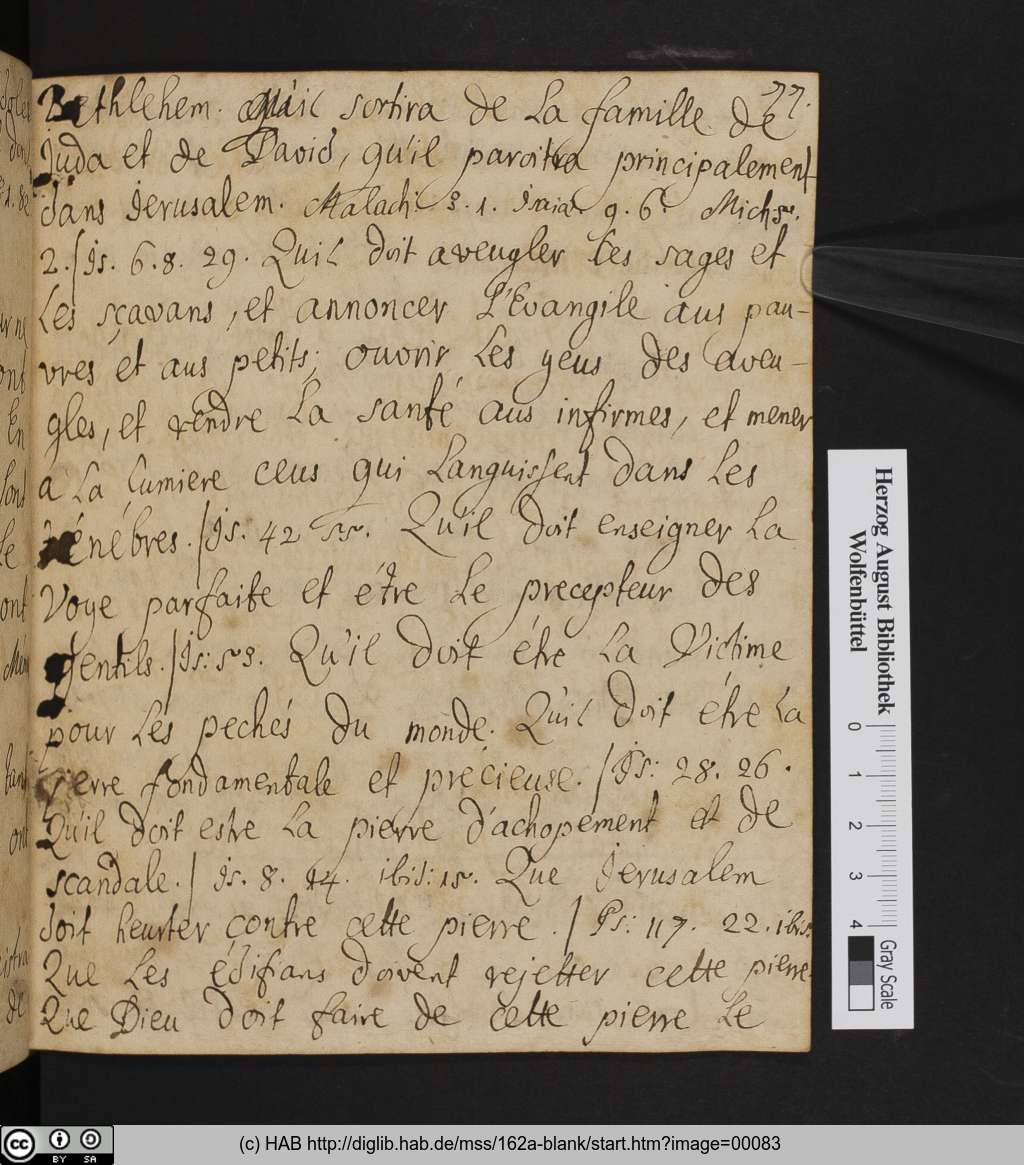 77.
Bethlehem. qu'il sortira de la famille de
Juda et de David, qu'il paroitra principalement
dans Jerusalem. Malach. 3. 1. 9. 6. Mich. 5.
2. / Is. 6. 8. 29. Qu'il doit aveugler les sages et
les sçavans, et annoncer l'Evangile aus pau-
vres et aus petits; ouvrir les yeus des aveu-
gles, et rendre la santé aus infirmes, et mener
a la lumiere ceus qui languissent dans les
ténébres. / Is. 42 55. Qu'il doit enseigner la
voye parfaite et étre le precepteur des
gentils. / Is: 53. Qu'il doit étre la Victime
pour les pechés du monde. Qu'il doit étre la
pierre fondamentale et précieuse. / Is: 28. 26.
Qu'il doit estre la pierre d'achopement et de
scandale. / Is. 8. 14. ibid: 15. Que Jerusalem
doit heurter contre cette pierre. / Ps: 117. 22. ibid.
Que les édifians doivent rejetter cette pierre.
Que Dieu doit faire de cette pierre le
Herzog August Bibliothek
Wolfenbüttel
0 1 2 3 4
Gray Scale
cc BY SA
(c) HAB http://diglib.hab.de/mss/162a-blank/start.htm?image=00083